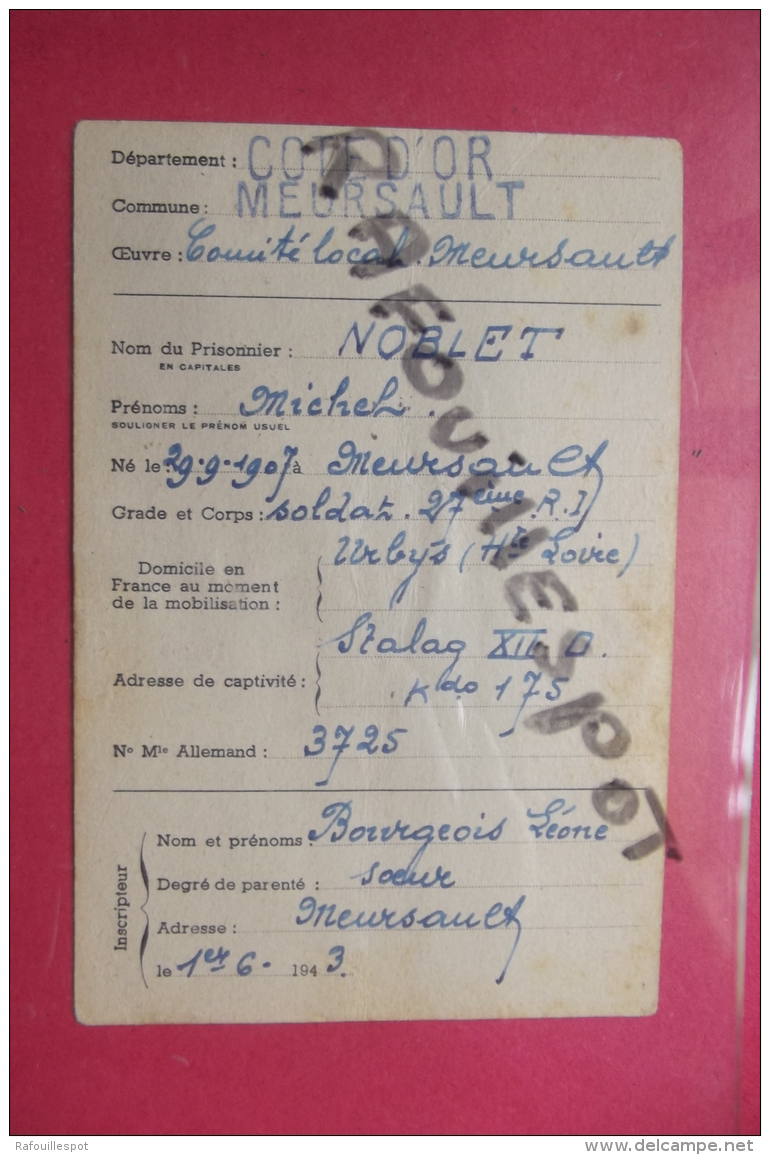 Département : COTE D'OR
Commune : MEURSAULT
Œuvre : Comité local. Meursault
Nom du Prisonnier : NOBLET
EN CAPITALES
Prénoms : Michel.
SOULIGNER LE PRÉNOM USUEL
Né le : 29.9.1907 à Meursault
Grade et Corps : soldat. 27ème R.I
Domicile en France au moment de la mobilisation : Urbys (Hte Loire)
Adresse de captivité : Stalag XII D.
Kdo 175
No Mle Allemand : 3725
Inscripteur
Nom et prénoms : Bourgeois Léone
Degré de parenté : sœur
Adresse : Meursault
le 1er 6. 1943.
RAFOUILLESPOT
Rafouillespot
www.delcampe.net